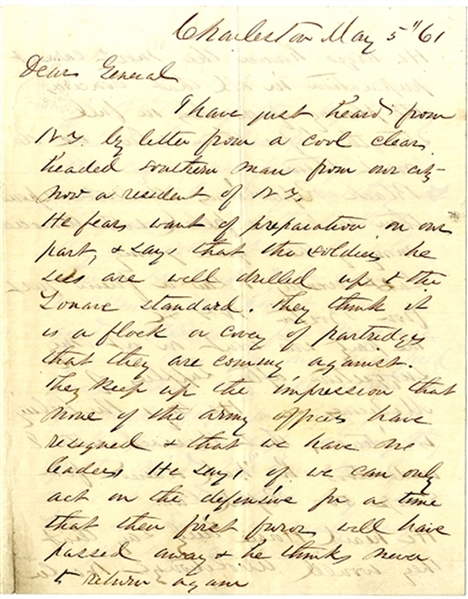 Charleston May 5" 61
Dear General
I have just heard from
N Y. by letter from a cool clear
headed southern man from our city
now a resident of N Y.
He fears want of preparation on our
part, & says that the soldiers he
sees are well drilled up to the
Zouave standard. They think it
is a flock or covey of partridges
that they are coming against.
They keep up the impression that
none of the army officers have
resigned & that we have no
leaders He says if we can only
act on the defensive for a time
that their first furor will have
passed away & he thinks never
to return again